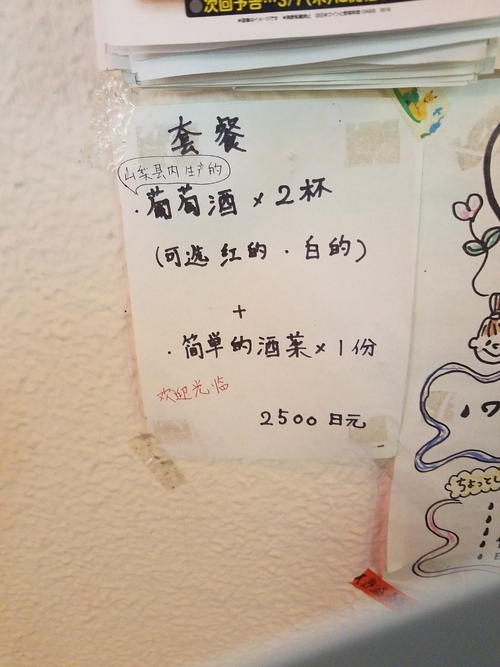 次回予告…3/7(木)に開
套餐
山梨县内生产的
·葡萄酒×2杯
(可选 红的·白的)
+
·简単的酒菜×1份
欢迎光临
2500日元
ちょっとし